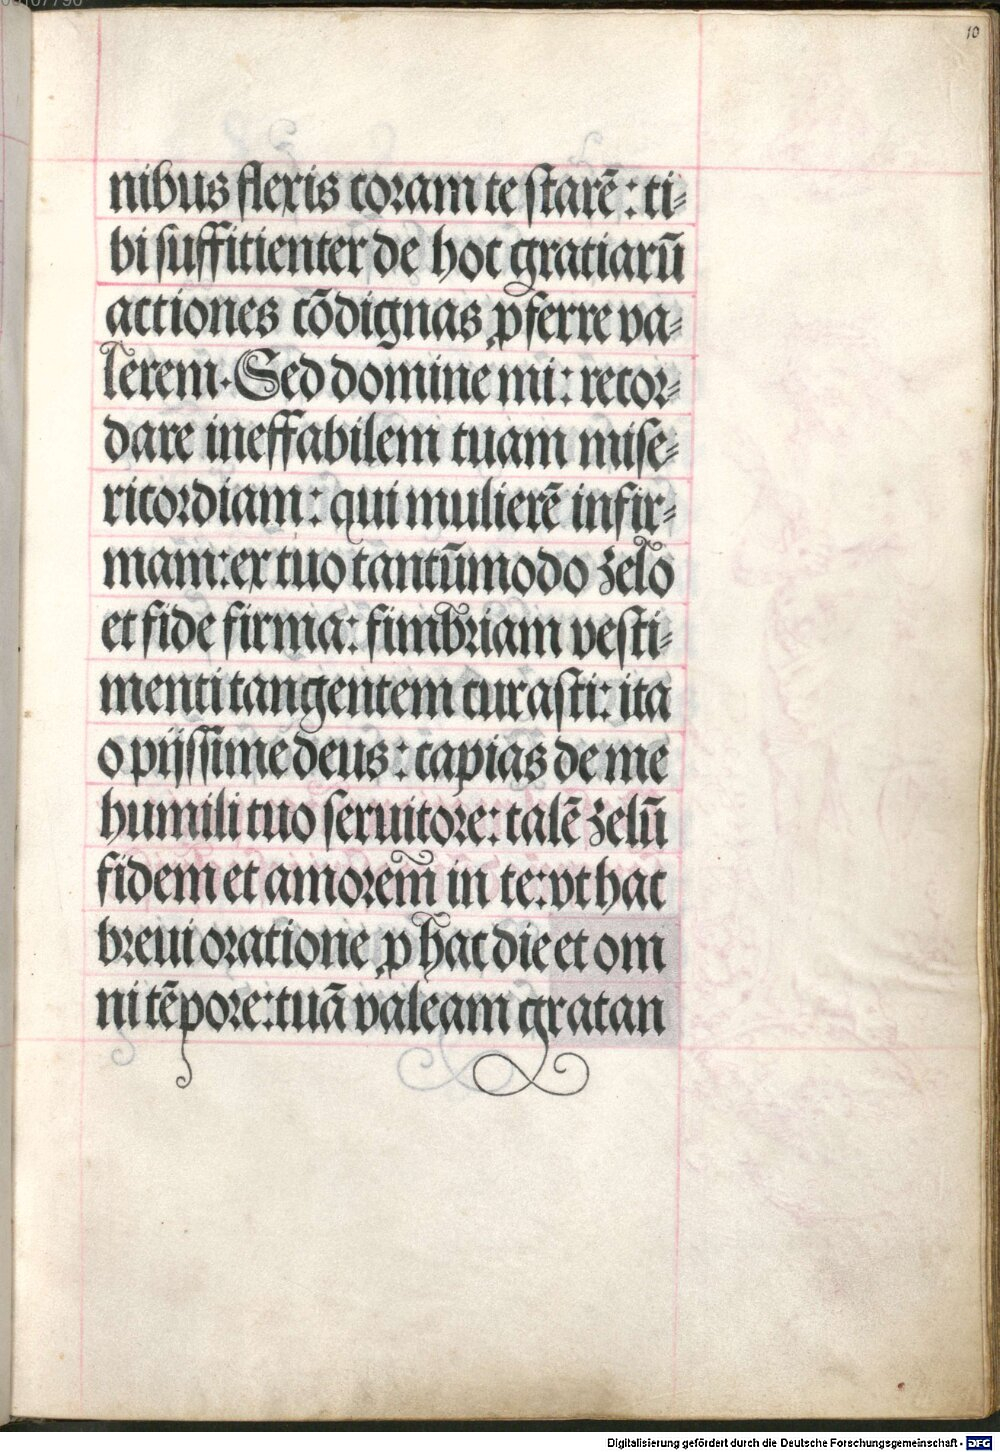 10
nibus flexis coram te starē: ti⸗
bi sufficienter de hoc gratiarū
actiones cōdignas ꝓferre va⸗
lerem. Sed domine mi: recor⸗
dare ineffabilem tuam mise⸗
ricordiam: qui mulierē infir⸗
mam: ex tuo tantūmodo zelo
et fide firma: fimbriam vesti⸗
menti tangentem curasti: ita
o pijssime deus: capias de me
humili tuo seruitore: talē zelū
fidem et amorem in te: vt hac
breui oratione ꝓ hac die et om
ni tēpore: tuā valeam gratan
Digitalisierung gefördert durch die Deutsche Forschungsgemeinschaft - DFG